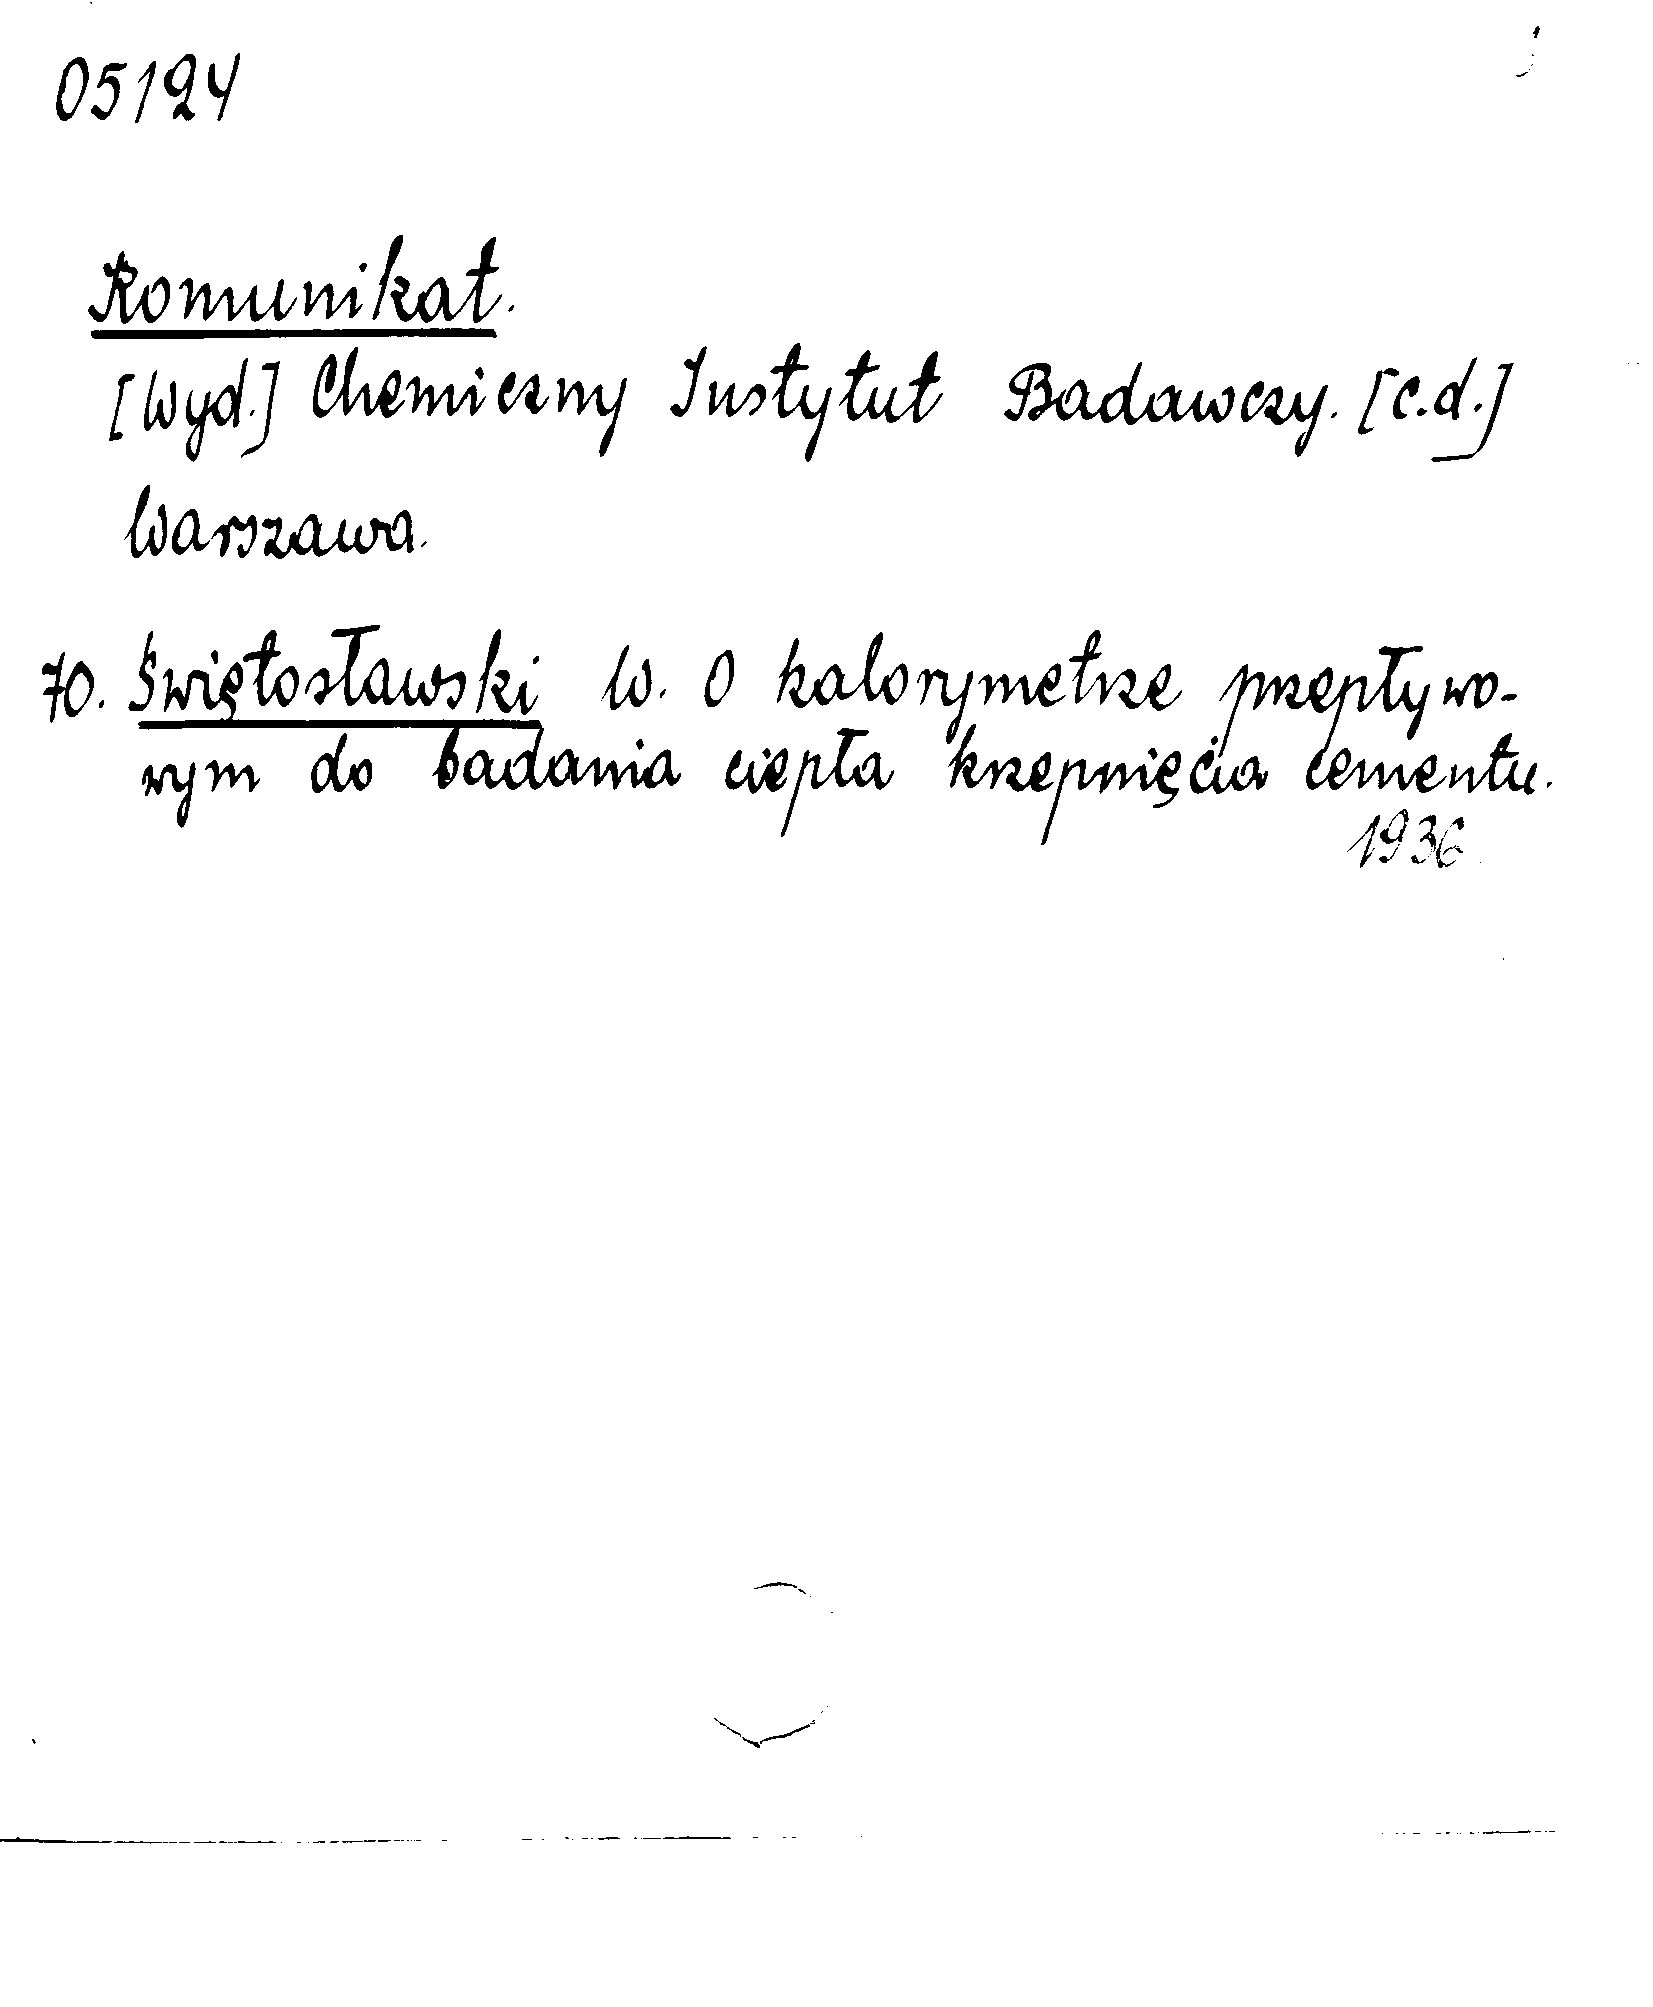 05124
Komunikat.
[Wyd.] Chemiczny Instytut Badawczy. [c.d.]
Warszawa.
70. Świętosławski W. O kalorymetrze przepływo-
wym do badania ciepła krzepnięcia cementu.
1936